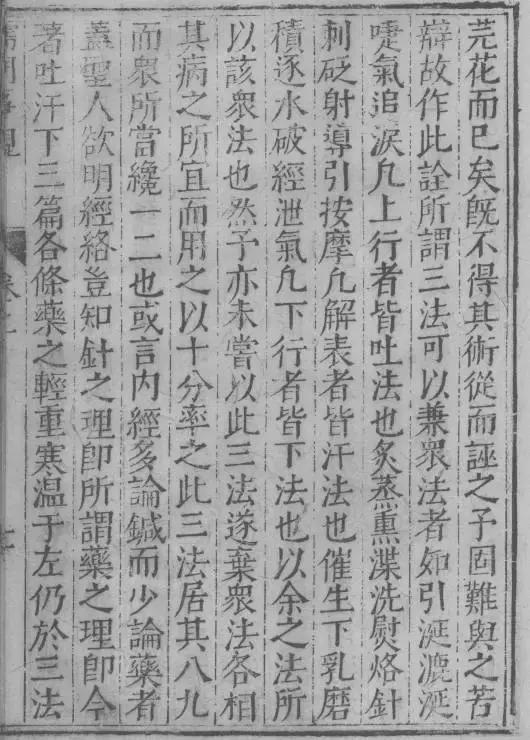 芫花而已矣旣不得其術從而誣之予固難與之苦
辯故作此詮所謂三法可以兼衆法者如引涎漉涎
嚏氣追淚凡上行者皆吐法也炙蒸熏渫洗熨烙針
刺砭射導引按摩凡解表者皆汗法也催生下乳磨
積逐水破經泄氣凡下行者皆下法也以余之法所
以該衆法也然予亦未嘗以此三法遂棄衆法各相
其病之所宜而用之以十分率之此三法居其八九
而衆所當纔一二也或言内經多論鍼而少論藥者
蓋聖人欲明經絡豈知針之理即所謂藥之理即今
著吐汗下三篇各條藥之輕重寒温于左仍於三法
儒門事親